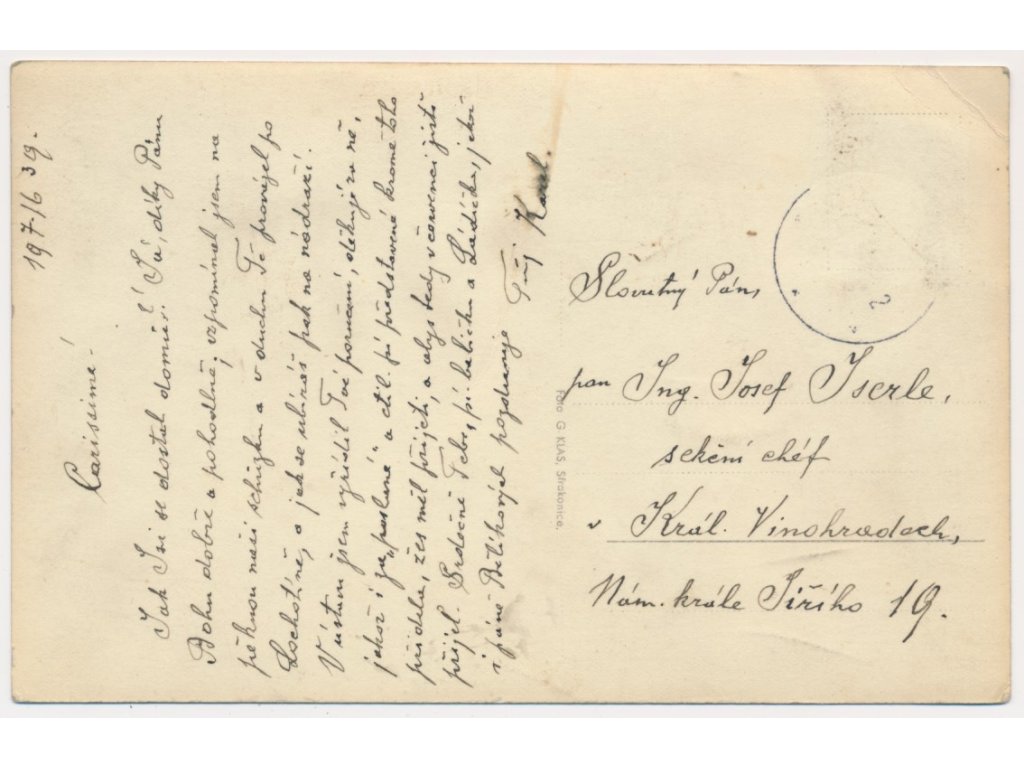 19 7/6 39.
Carissime!
Jak Jsi se dostal domů? Já, díky Pánu
Bohu dobře a pohodlně, vzpomínal jsem na
pěknou naši schůzku a v duchu Tě provázel po
Lochotíně, a jak se ubíráš pak na nádraží.
V ústavu jsem vyřídil Tvé poručení, děkuji za ně,
jakož i za „poslané" a ctil. pí představená kromě toho
přidala, žes měl přijeti, a abys tedy v červenci jistě
přijel. Srdečně Tebe, pí. babičku a Ládíčka, jakož
i páně Bělíkových pozdravuje
Tvůj Karel.
Foto G KLAS, Strakonice.
Slovutný Pán,
pan Ing. Josef Iserle,
sekční chéf
v Král. Vinohradech,
Nám. krále Jiřího 19.